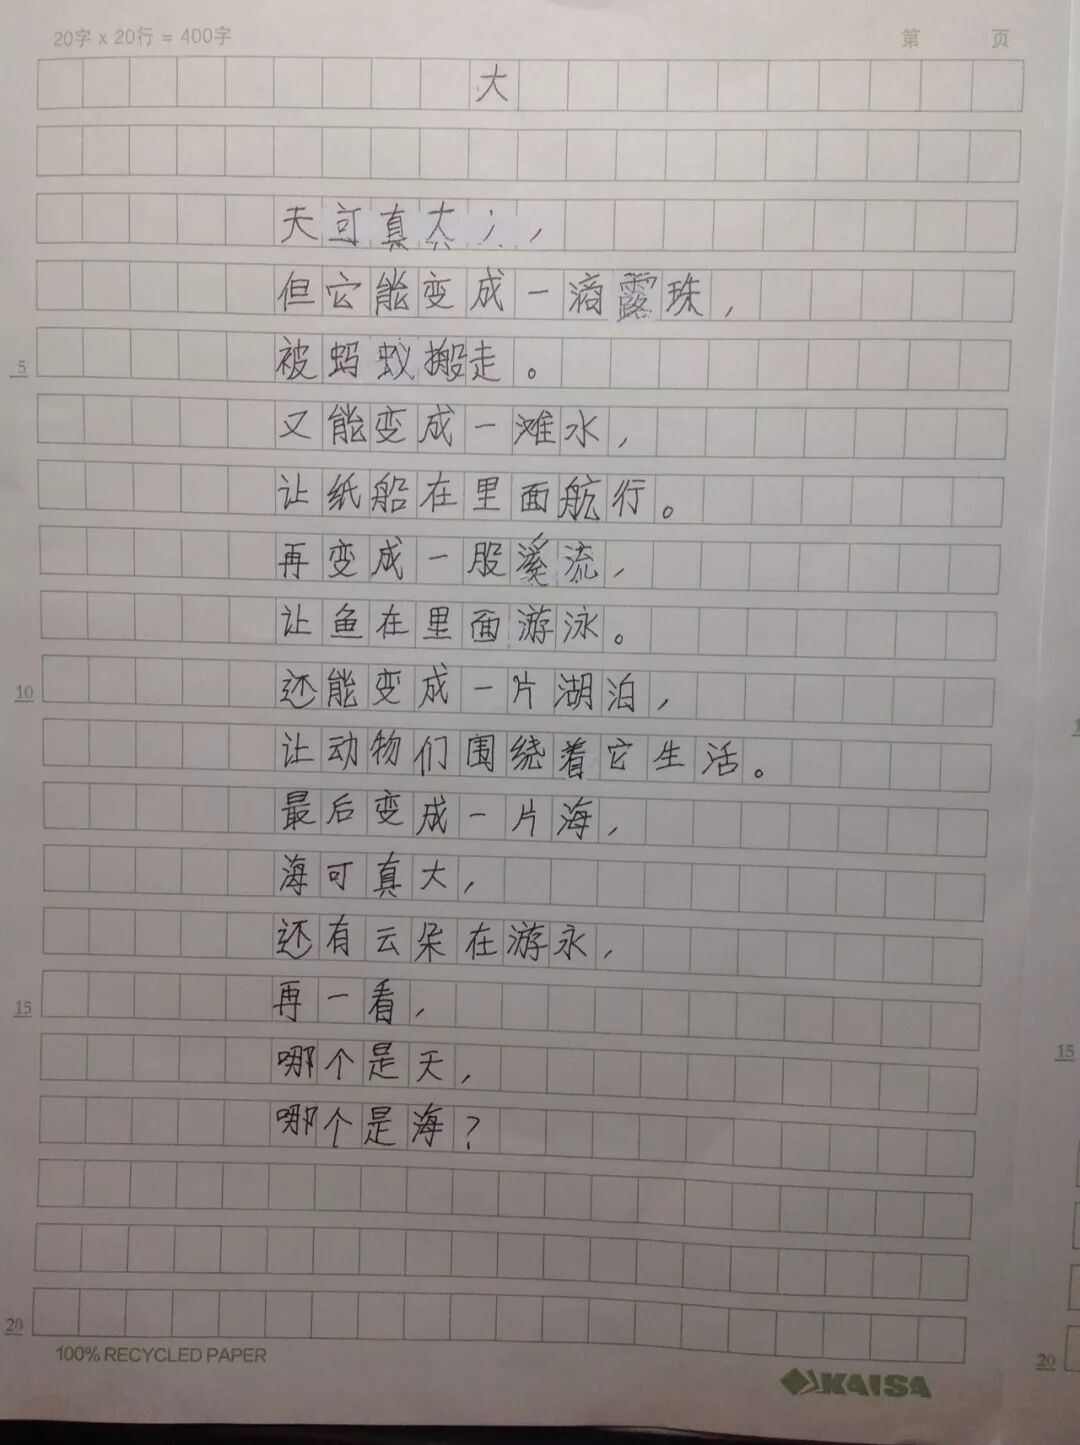 20字 x 20行 = 400字 第 页
大
天可真大,
但它能变成一滴露珠,
被蚂蚁搬走。
5
又能变成一滩水,
让纸船在里面航行。
再变成一股溪流,
让鱼在里面游泳。
还能变成一片湖泊,
10
让动物们围绕着它生活。
最后变成一片海,
海可真大,
还有云朵在游永,
再一看,
15
哪个是天,
哪个是海?
15
20
20
100% RECYCLED PAPER
KAISA